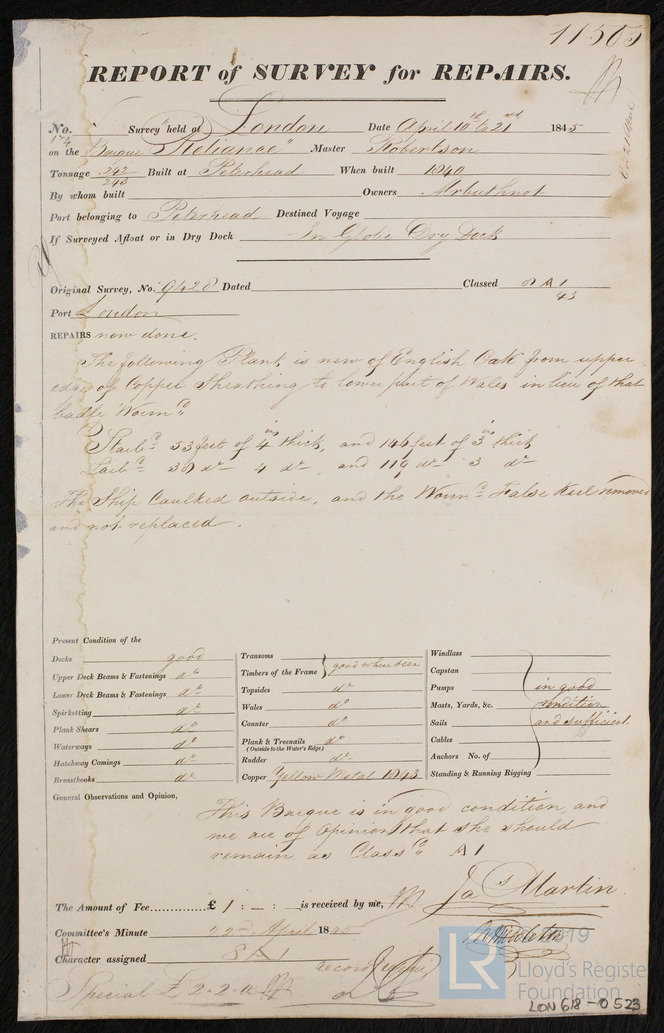 11505
REPORT of SURVEY for REPAIRS.
No. 174 Survey held at London Date April 10th & 21st 1845
on the Barque Master Robertson
Tonnage 242 243 Built at Peterhead When built 1840
By whom built Owners Arbuthnot
Port belonging to Peterhead Destined Voyage
If Surveyed Afloat or in Dry Dock In Globe Dry Dock
Original Survey, No. 9428 Dated Classed 8 A 1
43
Port London
REPAIRS now done.
The following Plank is new of English Oak from upper
edge of Copper Sheathing to lower part of Wales in lieu of that
badly Worm'd
Starb'd 53 feet of 4 ins thick, and 146 feet of 3 ins thick
Larb'd 30 do 4 do, and 119 do 3 do
The Ship Caulked outside, and the Worm'd False Keel removed
and not replaced.
Present Condition of the
Decks good
Upper Deck Beams & Fastenings do
Lower Deck Beams & Fastenings do
Spirketting do
Plank Shears do
Waterways do
Hatchway Comings do
Breasthooks do
Transoms
Timbers of the Frame } good where seen
Topsides do
Wales do
Counter do
Plank & Treenails do
(Outside to the Water's Edge)
Rudder do
Copper Yellow Metal 1843
Windlass
Capstan
Pumps in good
Masts, Yards, &c. condition
Sails and sufficient
Cables
Anchors No. of
Standing & Running Rigging
General Observations and Opinion,
This Barque is in good condition and
we are of Opinion that she should
remain as Class'd A 1
The Amount of Fee............... £ 1 : – : is received by me,
Jas Martin
Committee's Minute 22nd April 1845
Character assigned 8 A 1
Special £ 2.2.0
© 2019
LR
Lloyd's Register
Foundation
LON 618-0523